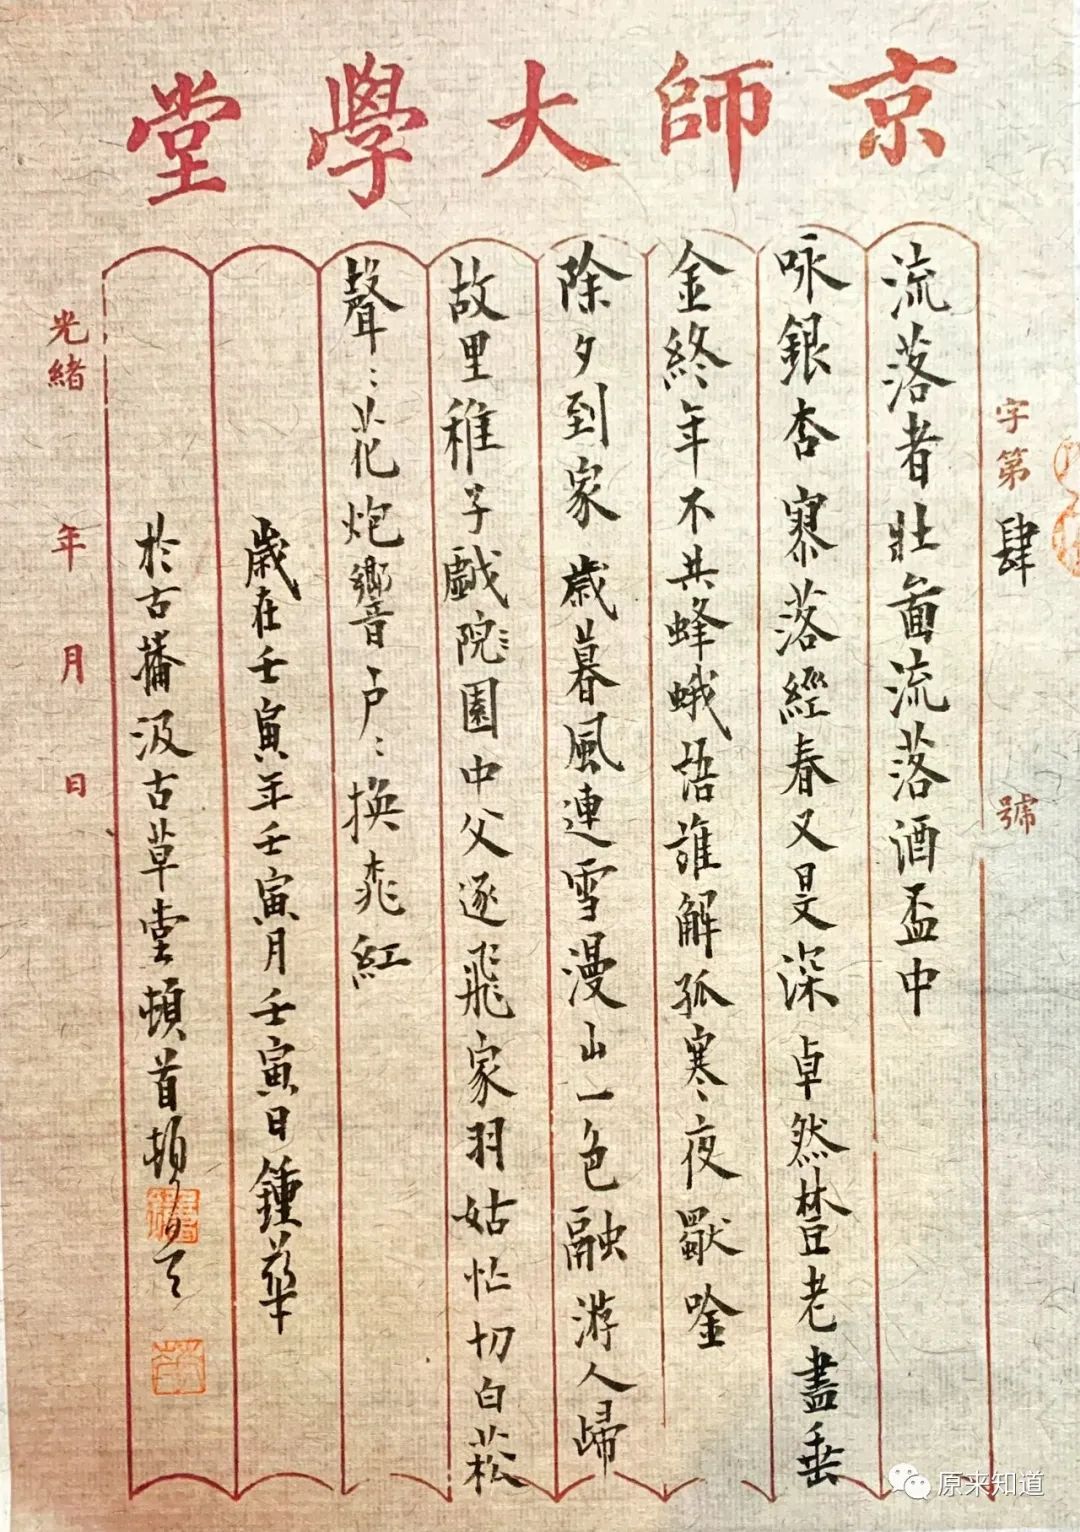 京師大學堂
字第肆號
流落者壯啚流落酒盃中
咏銀杏 寥落經春又旻深卓然老盡垂
金終年不共蜂蛾語誰解孤寒夜獨唫
除夕到家 歲暮風連雪漫山一色融游人歸
故里稚子戲院園中父逐飛家羽姑忙切白菘
聲〻花炮響戶〻換桃紅
歲在壬寅年壬寅月壬寅日鍾華
於古播汲古草堂頓首頓首
光緒 年 月 日
原来知道